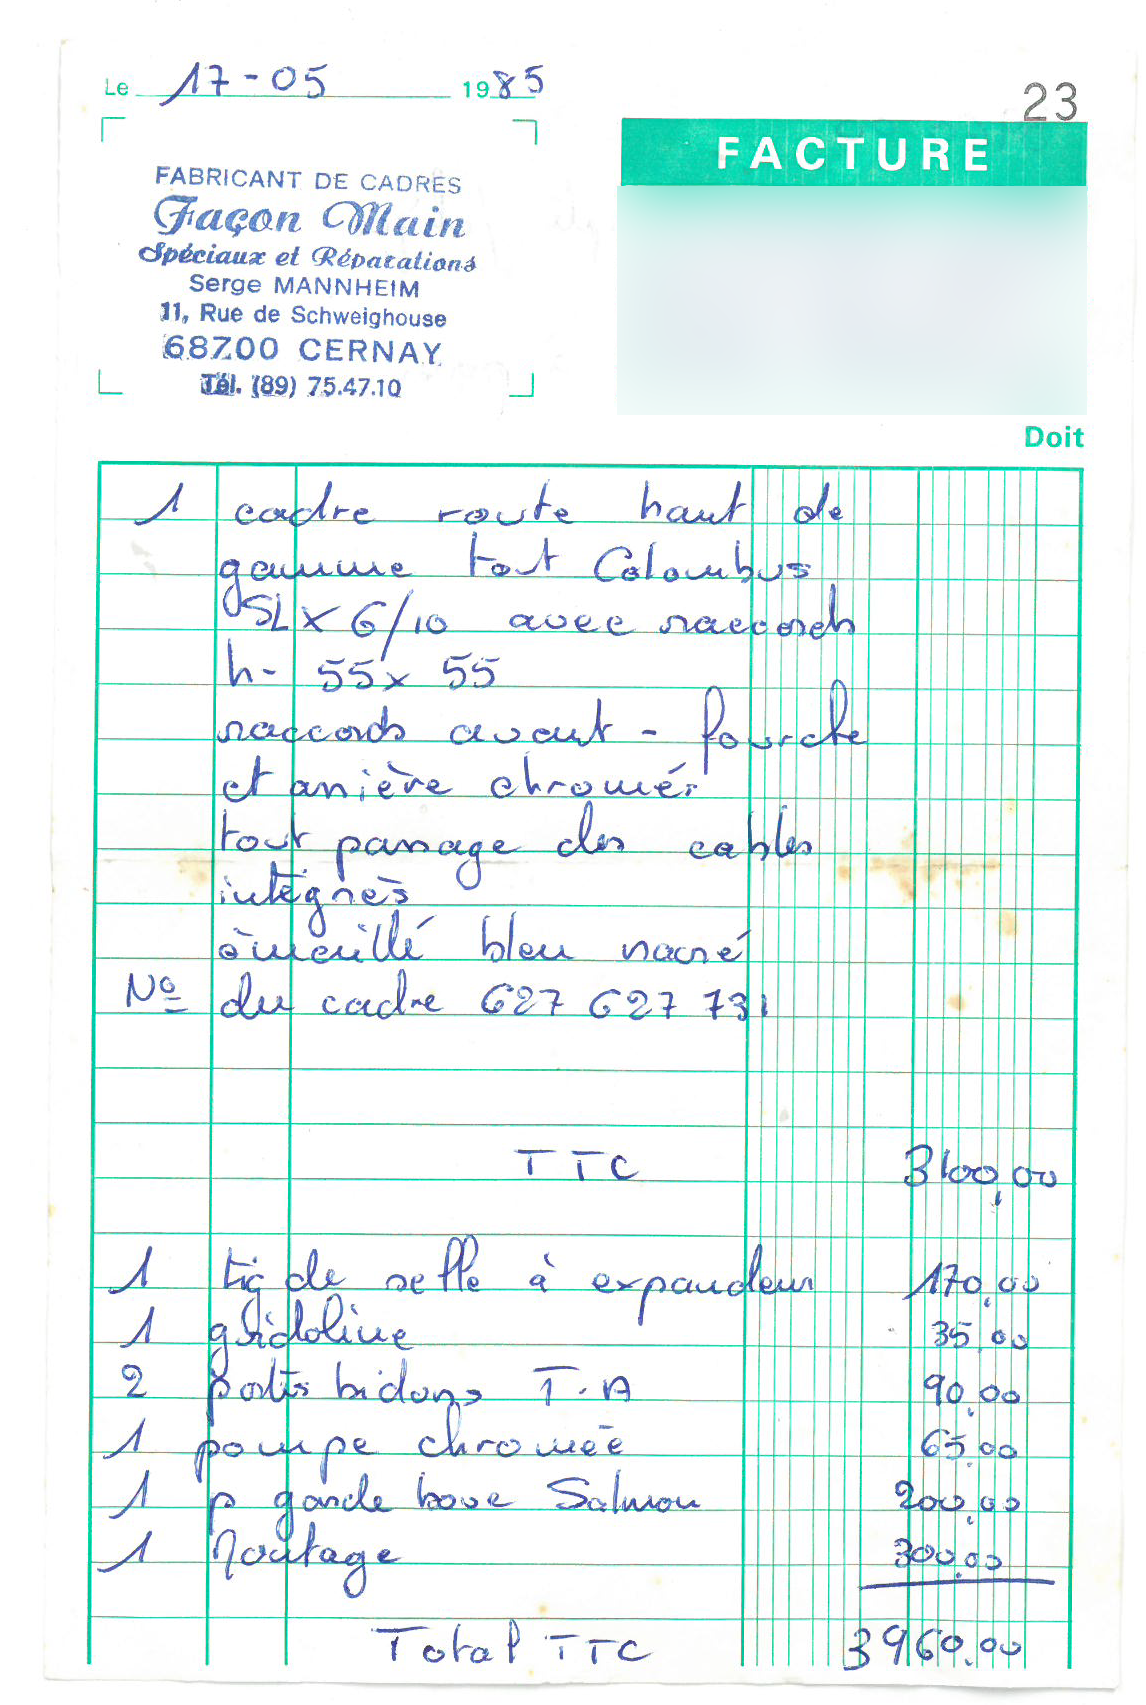 Le 17-05 1985
23
FACTURE
FABRICANT DE CADRES
Façon Main
Spéciaux et Réparations
Serge MANNHEIM
11, Rue de Schweighouse
68700 CERNAY
Tél. (89) 75.47.10
Doit
1 cadre route haut de
gamme tout Colombus
SLX 6/10 avec raccords
h- 55x 55
raccords avant - fourche
et arrière chromés
tout passage des cables
intégrès
émeillé bleu nacré
Nº du cadre 627 627 731
TTC 3100,00
1 tig de selle à expandeur 170,00
1 ghidoline 35,00
2 portes bidons T.A 90,00
1 pompe chromée 65,00
1 p garde boue Salmon 200,00
1 Montage 300,00
Total TTC 3960,00